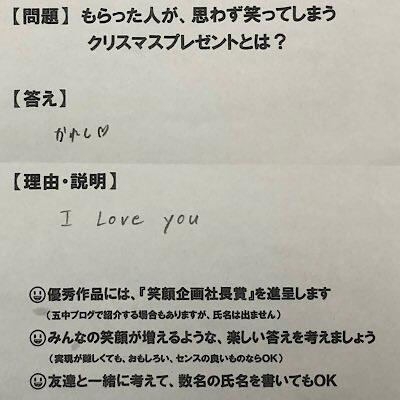 【問題】もらった人が、思わず笑ってしまう
クリスマスプレゼントとは?
【答え】
かれし♡
【理由・説明】
I Love you
優秀作品には、『笑顔企画社長賞』を進呈します
(五中ブログで紹介する場合もありますが、氏名は出ません)
みんなの笑顔が増えるような、楽しい答えを考えましょう
(実現が難しくても、おもしろい、センスの良いものならOK)
友達と一緒に考えて、数名の氏名を書いてもOK